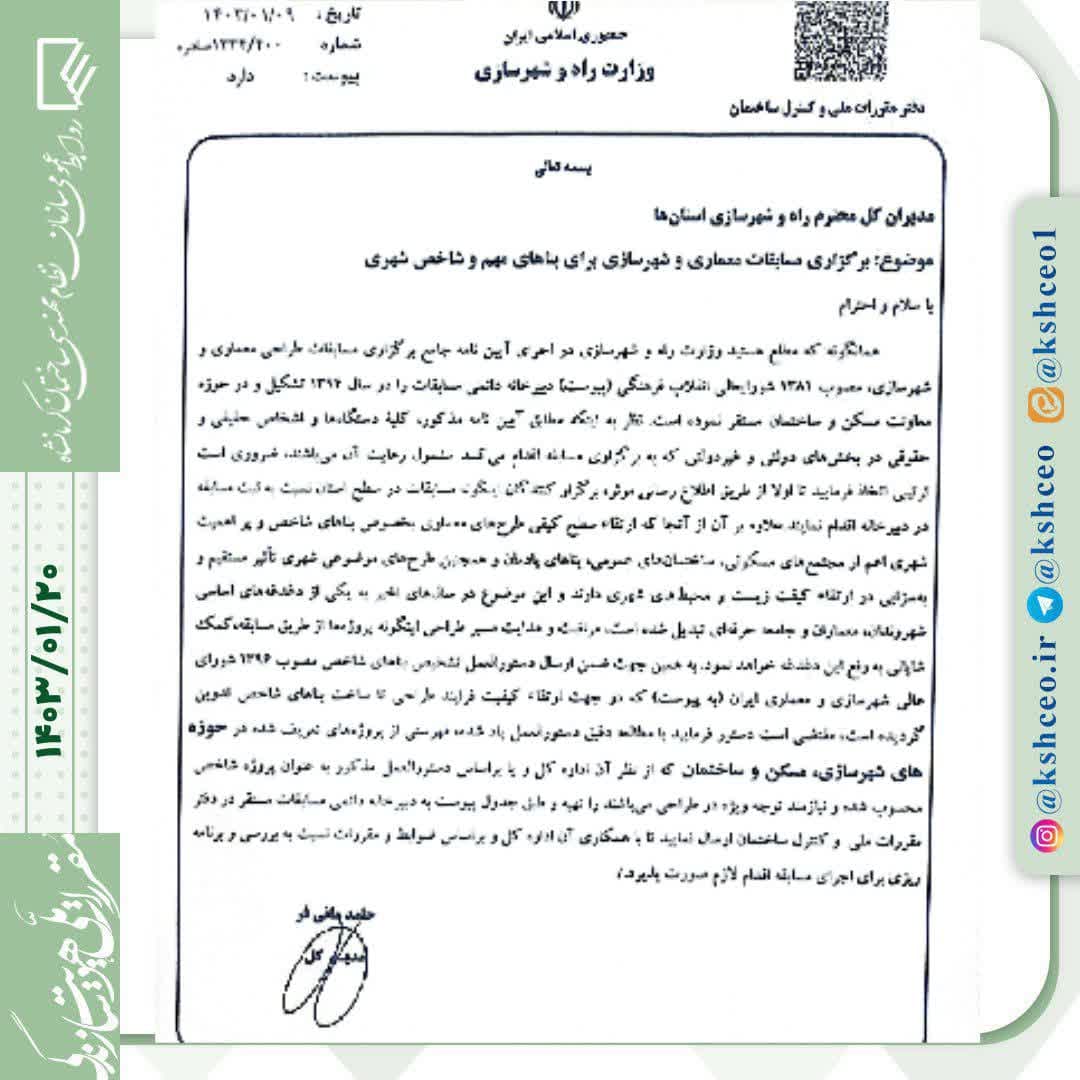 تاریخ: ۱۴۰۳/۰۱/۰۹
شماره ۱۳۳۴/۴۰۰صادره
پیوست: دارد
جمهوری اسلامی ایران
وزارت راه و شهرسازی
دفتر مقررات ملی و کنترل ساختمان
بسمه تعالی
مدیران کل محترم راه و شهرسازی استان‌ها
موضوع: برگزاری مسابقات معماری و شهرسازی برای بناهای مهم و شاخص شهری
با سلام و احترام
همانگونه که مطلع هستید وزارت راه و شهرسازی در اجرای آیین نامه جامع برگزاری مسابقات طراحی معماری و
شهرسازی، مصوب ۱۳۸۱ شورایعالی انقلاب فرهنگی (پیوست) دبیرخانه دائمی مسابقات را در سال ۱۳۹۴ تشکیل و در حوزه
معاونت مسکن و ساختمان مستقر نموده است. نظر به اینکه مطابق آیین نامه مذکور، کلیه دستگاه‌ها و اشخاص حقیقی و
حقوقی در بخش‌های دولتی و غیردولتی که به برگزاری مسابقه اقدام می‌کنند مشمول رعایت آن می‌باشند، ضروری است
ترتیبی اتخاذ فرمایید تا اولا از طریق اطلاع رسانی موثر، برگزار کنندگان اینگونه مسابقات در سطح استان نسبت به ثبت مسابقه
در دبیرخانه اقدام نمایند علاوه بر آن از آنجا که ارتقاء سطح کیفی طرح‌های معماری بخصوص بناهای شاخص و پر اهمیت
شهری اعم از مجتمع‌های مسکونی، ساختمان‌های عمومی، بناهای یادمان و همچنین طرح‌های موضوعی شهری تأثیر مستقیم و
به‌سزایی در ارتقاء کیفیت زیست و محیط‌های شهری دارند و این موضوع در سال‌های اخیر به یکی از دغدغه‌های اساسی
شهروندان، معماران و جامعه حرفه‌ای تبدیل شده است، مراقبت و هدایت مسیر طراحی اینگونه پروژه‌ها از طریق مسابقه، کمک
شایانی به رفع این دغدغه خواهد نمود. به همین جهت ضمن ارسال دستورالعمل تشخیص بناهای شاخص مصوب ۱۳۹۶ شورای
عالی شهرسازی و معماری ایران (به پیوست) که در جهت ارتقاء کیفیت فرایند طراحی تا ساخت بناهای شاخص تدوین
گردیده است، مقتضی است دستور فرمایید با مطالعه دقیق دستورالعمل یاد شده، فهرستی از پروژه‌های تعریف شده در حوزه
های شهرسازی، مسکن و ساختمان که از نظر آن اداره کل و یا براساس دستورالعمل مذکور به عنوان پروژه شاخص
محسوب شده و نیازمند توجه ویژه در طراحی می‌باشند را تهیه و طبق جدول پیوست به دبیرخانه دائمی مسابقات مستقر در دفتر
مقررات ملی و کنترل ساختمان ارسال نمایید تا با همکاری آن اداره کل و براساس ضوابط و مقررات نسبت به بررسی و برنامه
ریزی برای اجرای مسابقه اقدام لازم صورت پذیرد./
حامد مانی فر
مدیر کل
روابط عمومی سازمان نظام مهندسی ساختمان کرمانشاه
۱۴۰۳/۰۱/۲۰
مقررات ملی هویت سازندگی
@kshceo.ir @kshceo @kshceo1